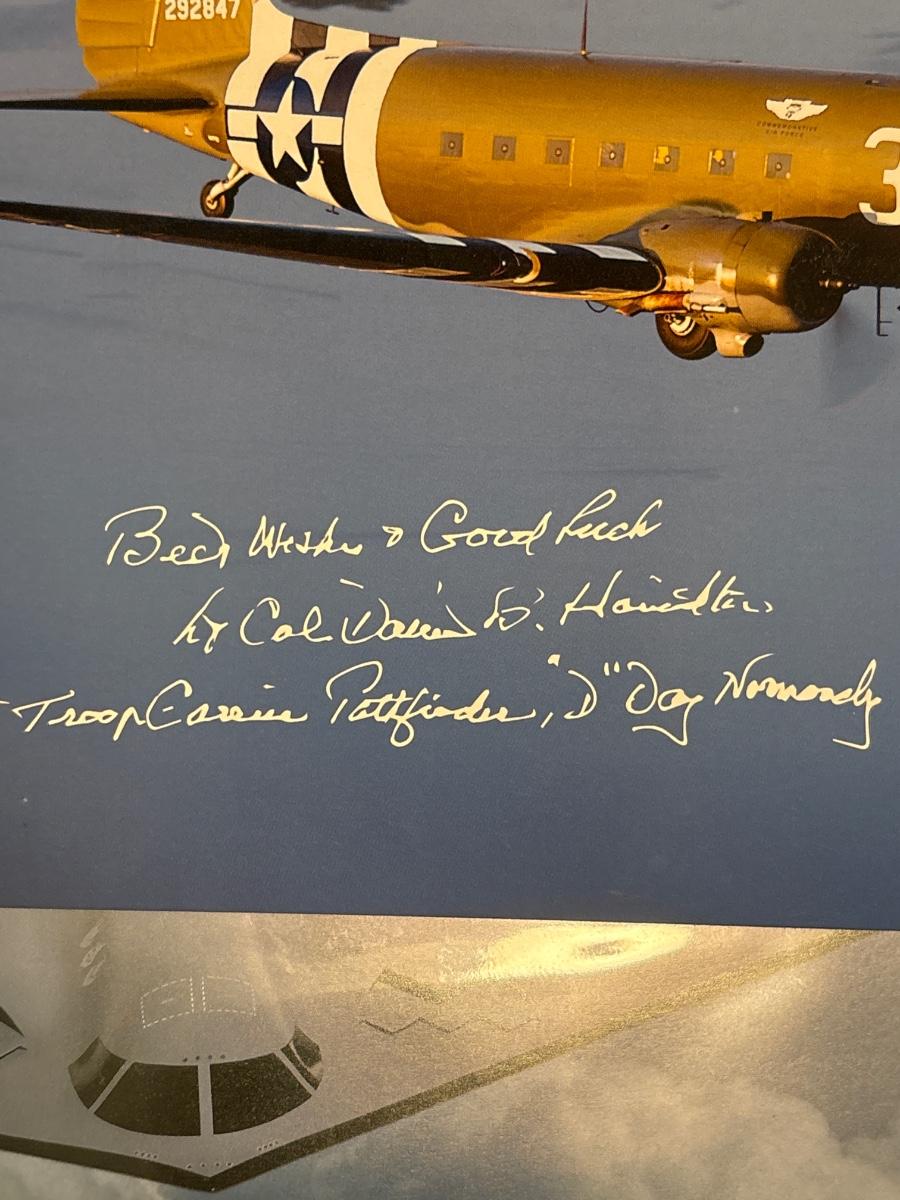 292847
COMMEMORATIVE
AIR FORCE
3
Best Wishes & Good Luck
by Col "David" D. Hamilton
Troop Carrier Pathfinder, "D" Day Normandy